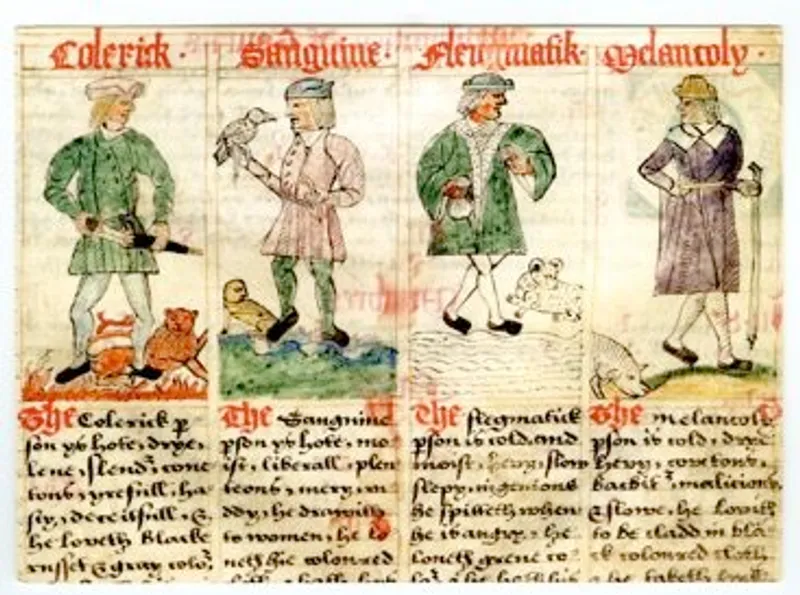 Colerick ·
Sanguine ·
Fleugmatik ·
Melancoly ·
The Colerick p
son ys hote, drye,
lene, slend', cove
tous, yrefull, ha
sty, deceitfull, &
he loveth blacke
russet & gray colo'
The Sanguine
pson ys hote, mo
ist, liberall, plen
teous, mery, ru
ddy, he drawith
to women, he lo
veth hie coloured
The flegmatick
pson is cold, and
moist, hevy, slow
slepy, ingenious
he spitteth when
he is angry, he
loveth grene co
The melancoly
pson is cold, drye
hevy, covetous,
backbit', malicious
& slowe, he lovith
to be cladd in bla
ck coloured cloth